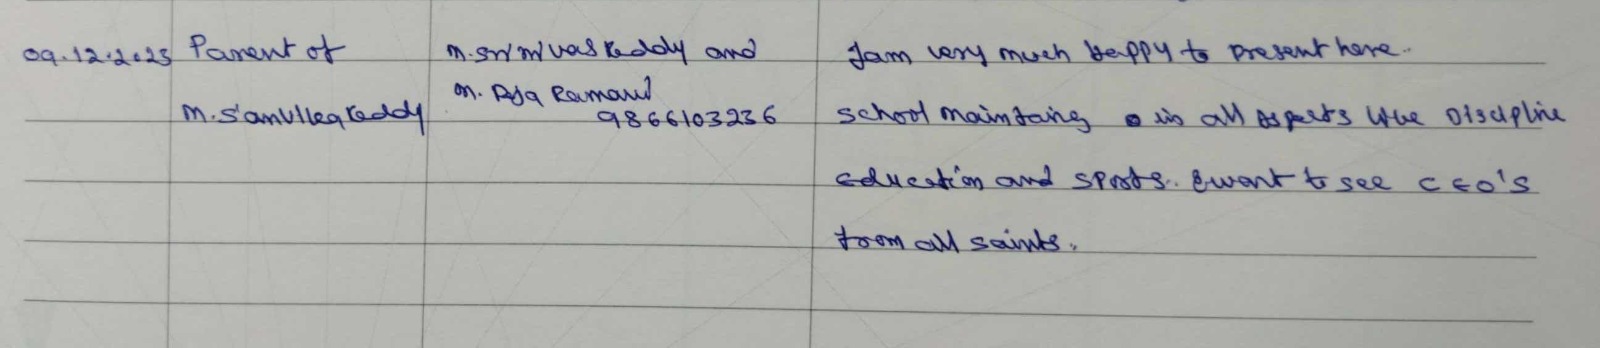 09.12.2023 Parent of M. Srinivas Reddy and I am very much happy to present here.
M. Roja Ramani
M. Sanvika Reddy 9866103236 School maintaing in all aspects like Discipline
education and sports. I want to see CEO's
from all saints.